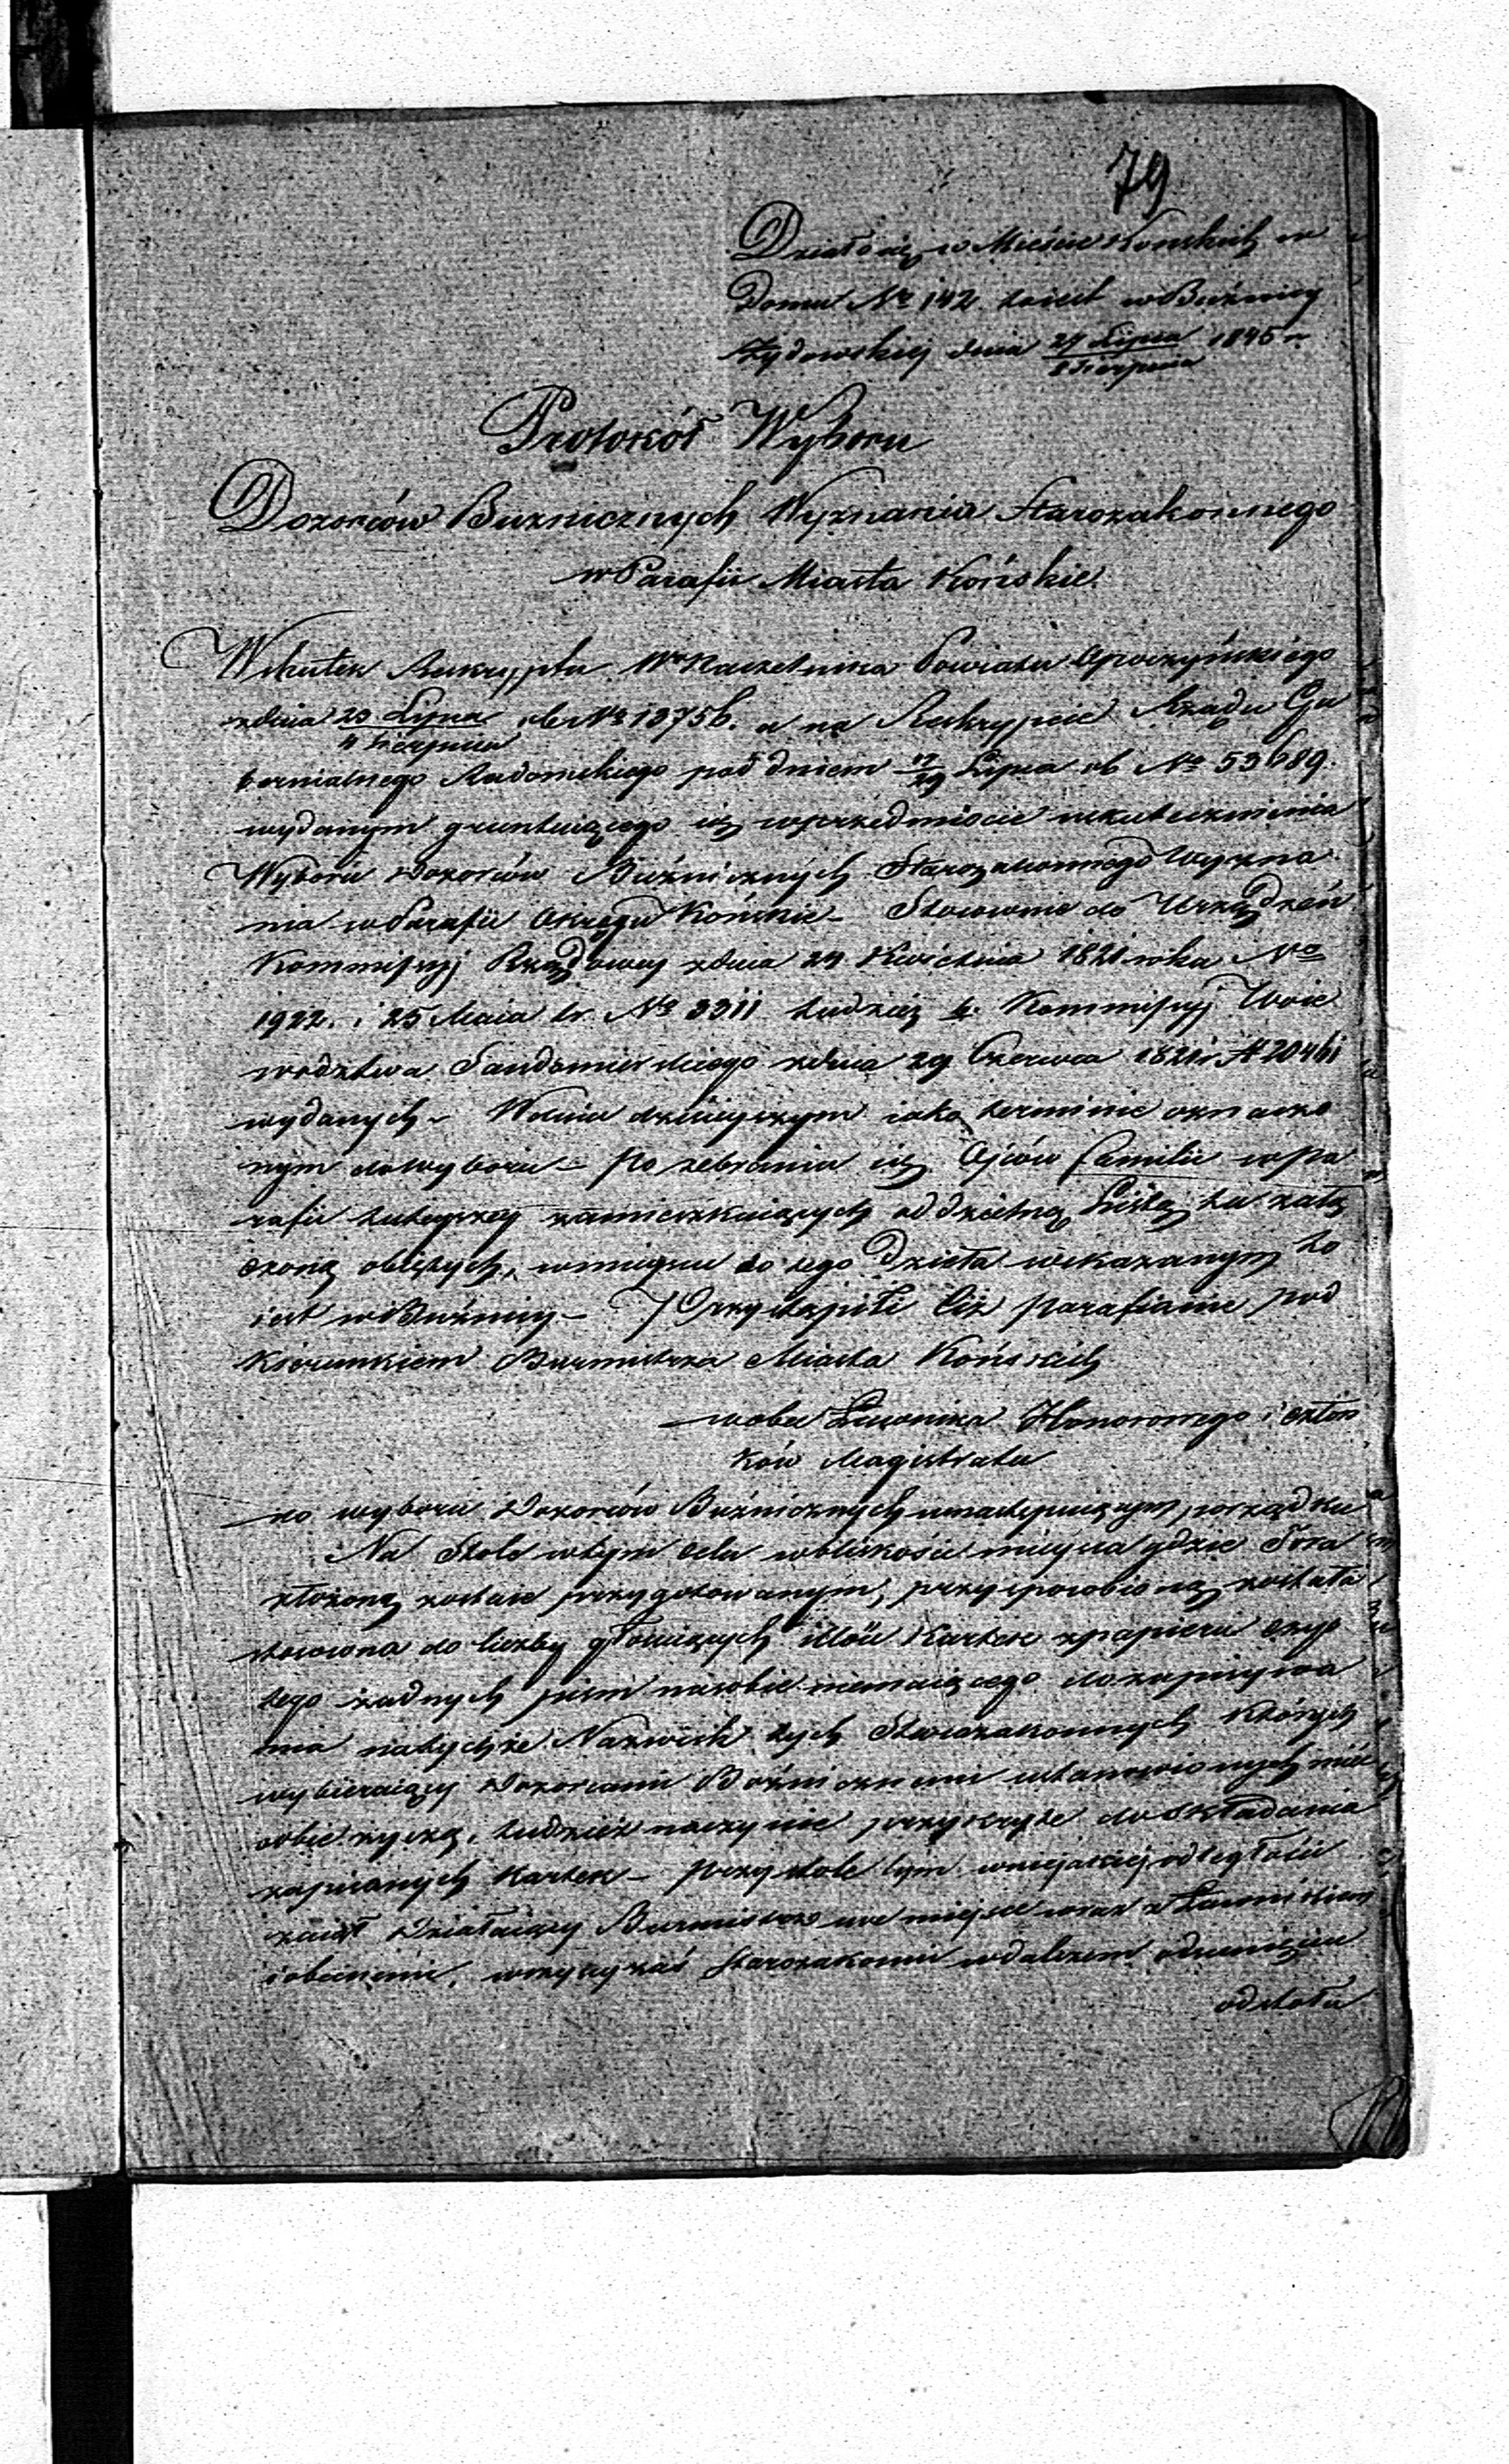 79
Działo się w Mieście Konskich w
Domu No 142. to iest w Buźnicy
Żydowskiej dnia 27 Lipca / 8 Sierpnia 1845 r.
Protokół Wyboru
Dozorców Buznicznych Wyznania Starozakonnego
w Parafii Miasta Końskie.
Wskutek Reskryptu Wo Naczelnika Powiatu Opoczyńskiego
zdnia 23 Lipca / 4 Sierpnia rb No 13756. a na Reskrypcie Rządu Gu
bernialnego Radomskiego pod dniem 17/29 Lipca rb No 53689.
wydanym gruntuiącego się wprzedmiocie uskutecznienia
Wyboru Dozorców Buźnicznych Starozakonnego Wyzna
nia w Parafii Okręgu Końskie - Stosownie do Urządzeń
Kommissyj Rządowey zdnia 24 Kwietnia 1821 roku No
1922. i 25 Maia tr. No 3311 tudzież b. Kommissyj Woie
wództwa Sandomirskiego zdnia 29 Czerwca 1821 r. # 20461
wydanych - W dniu dzisieyszym iako terminie oznaczo
nym do wyboru - po zebraniu się Ojców familii w pa
rafii tuteyszey zamieszkuiących oddzielną Listą tu załą
czoną obiętych, w mieyscu do tego Dzieła wskazanym to
iest w Buźnicy - Przystąpili ciż parafianie pod
Kierunkiem Burmistrza Miasta Końskich
wobec Ławnika Honorowego i człon
ków Magistratu
do wyboru Dozorców Buźnicznych w następuiącym porządku
Na Stole wtym celu wbliskości mieysca gdzie Tora
złożoną zostaie przygotowanym, przysposobioną została
stosowna do liczby głosuiących ilość Kartek z papieru czys
tego żadnych pism na sobie niemaiącego do zapisywa
nia na tychże Nazwisk tych Starozakonnych Których
wybieraiący Dozorcami Bóżnicznemi ustanowionych mieć
sobie życzą, tudzież naczynie przykryte do składania
zapisanych Kartek - przy stole tym w niejakiej odległości
zaiął Działaiący Burmistrz swe miejsce wraz z Ławnikiem
i obecnemi, wszyscy zaś Starozakonni w dalszem odsunięciu
od stołu